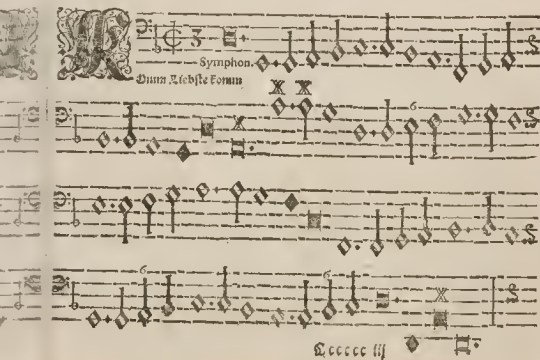 Symphon.
Nunn Liebste komm
6
6
6
Cccccc iij